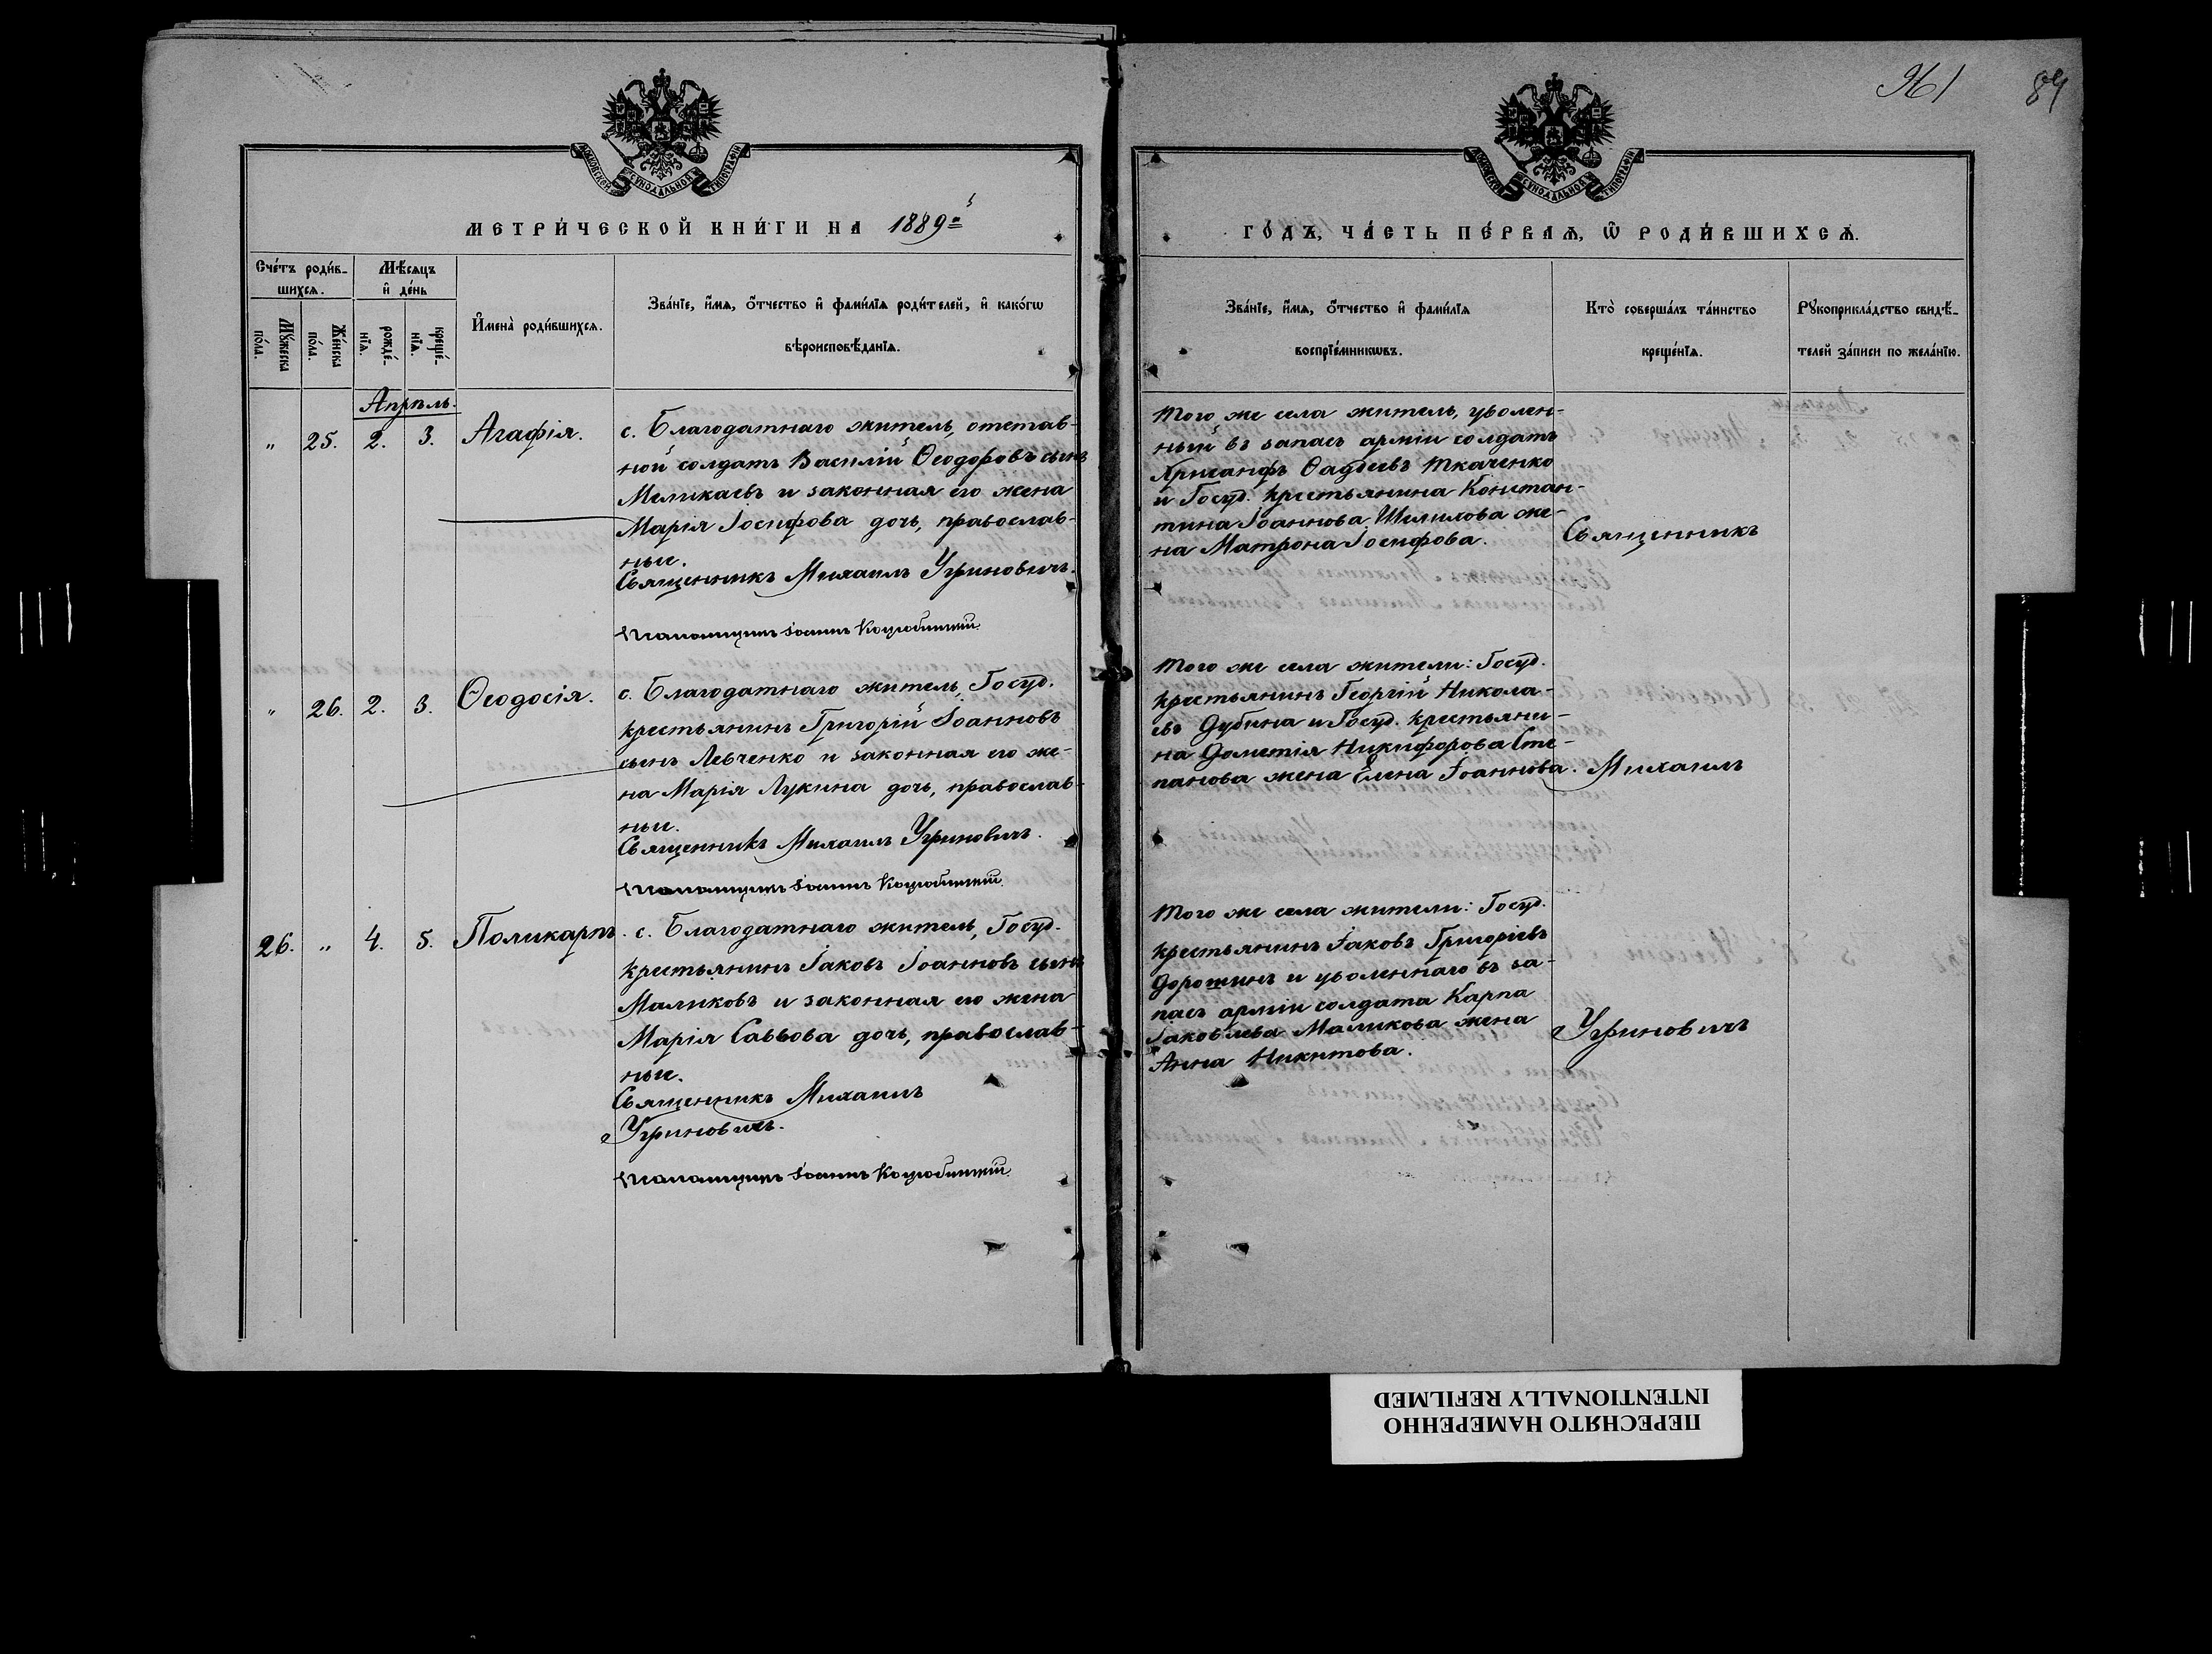 961 84
МОСКОВСКОЙ СѴНОДАЛЬНОЙ ТИПОГРАФІИ
МОСКОВСКОЙ СѴНОДАЛЬНОЙ ТИПОГРАФІИ
МЕТРИ́ЧЕСКОЙ КНИ́ГИ НА 1889й
ГО́ДЪ, ЧА́СТЬ ПЕ́РВАѦ, Ѽ РОДИ́ВШИХСѦ.
Сче́тъ роди́в-
шихсѧ.
Мѣ́сяцъ
и҆ де́нь
Мꙋ́жеска по́ла.
Же́нска по́ла.
рожде́-
нїѧ.
креще́-
нїѧ.
И҆мена̀ роди́вшихсѧ.
Зва́нїе, и҆́мѧ, ѻ҆́тчество и҆ фами́лїѧ роди́телей, и҆ како́гѡ
вѣроисповѣ́данїѧ.
Зва́нїе, и҆́мѧ, ѻ҆́тчество и҆ фами́лїѧ
воспрїе́мникѡвъ.
Кто̀ соверша́лъ та́инство
креще́нїѧ.
Рꙋкоприкла́дство свидѣ́-
телей за́писи по жела́нїю.
Апрѣль.
" 25. 2. 3. Агафія.
с. Благодатнаго житель, отстав-
ной солдатъ Василій Ѳеодоровъ сынъ
Меликаевъ и законная его жена
Марія Іосифова дочь, православ-
ные.
Священникъ Михаилъ Угриновичъ.
Псаломщикъ Іоаннъ Коцюбинскій
Того же села житель, уволен-
ный въ запасъ арміи солдатъ
Хрисанфъ Ѳаддеевъ Ткаченко
и Госуд. крестьянина Констан-
тина Іоаннова Шемилова же-
на Матрона Іосифова.
Священникъ
" 26. 2. 3. Ѳеодосія.
с. Благодатнаго житель, Госуд.
крестьянинъ Григорій Іоанновъ
сынъ Левченко и законная его же-
на Марія Лукина дочь, православ-
ные.
Священникъ Михаилъ Угриновичъ.
Псаломщикъ Іоаннъ Коцюбинскій
Того же села жители: Госуд.
крестьянинъ Георгій Никола-
евъ Дубина и Госуд. крестьяни-
на Дометія Никифорова Сте-
панова жена Елена Іоаннова.
Михаилъ
26. " 4. 5. Поликарпъ.
с. Благодатнаго житель, Госуд.
крестьянинъ Іаковъ Іоанновъ сынъ
Маликовъ и законная его жена
Марія Саввова дочь, православ-
ные.
Священникъ Михаилъ
Угриновичъ.
Псаломщикъ Іоаннъ Коцюбинскій
Того же села жители: Госуд.
крестьянинъ Іаковъ Григоріевъ
Дорошинъ и уволеннаго въ за-
пасъ арміи солдата Карпа
Іаковлева Маликова жена
Анна Никитова.
Угриновичъ
ПЕРЕСНЯТО НАМЕРЕННО
INTENTIONALLY REFILMED